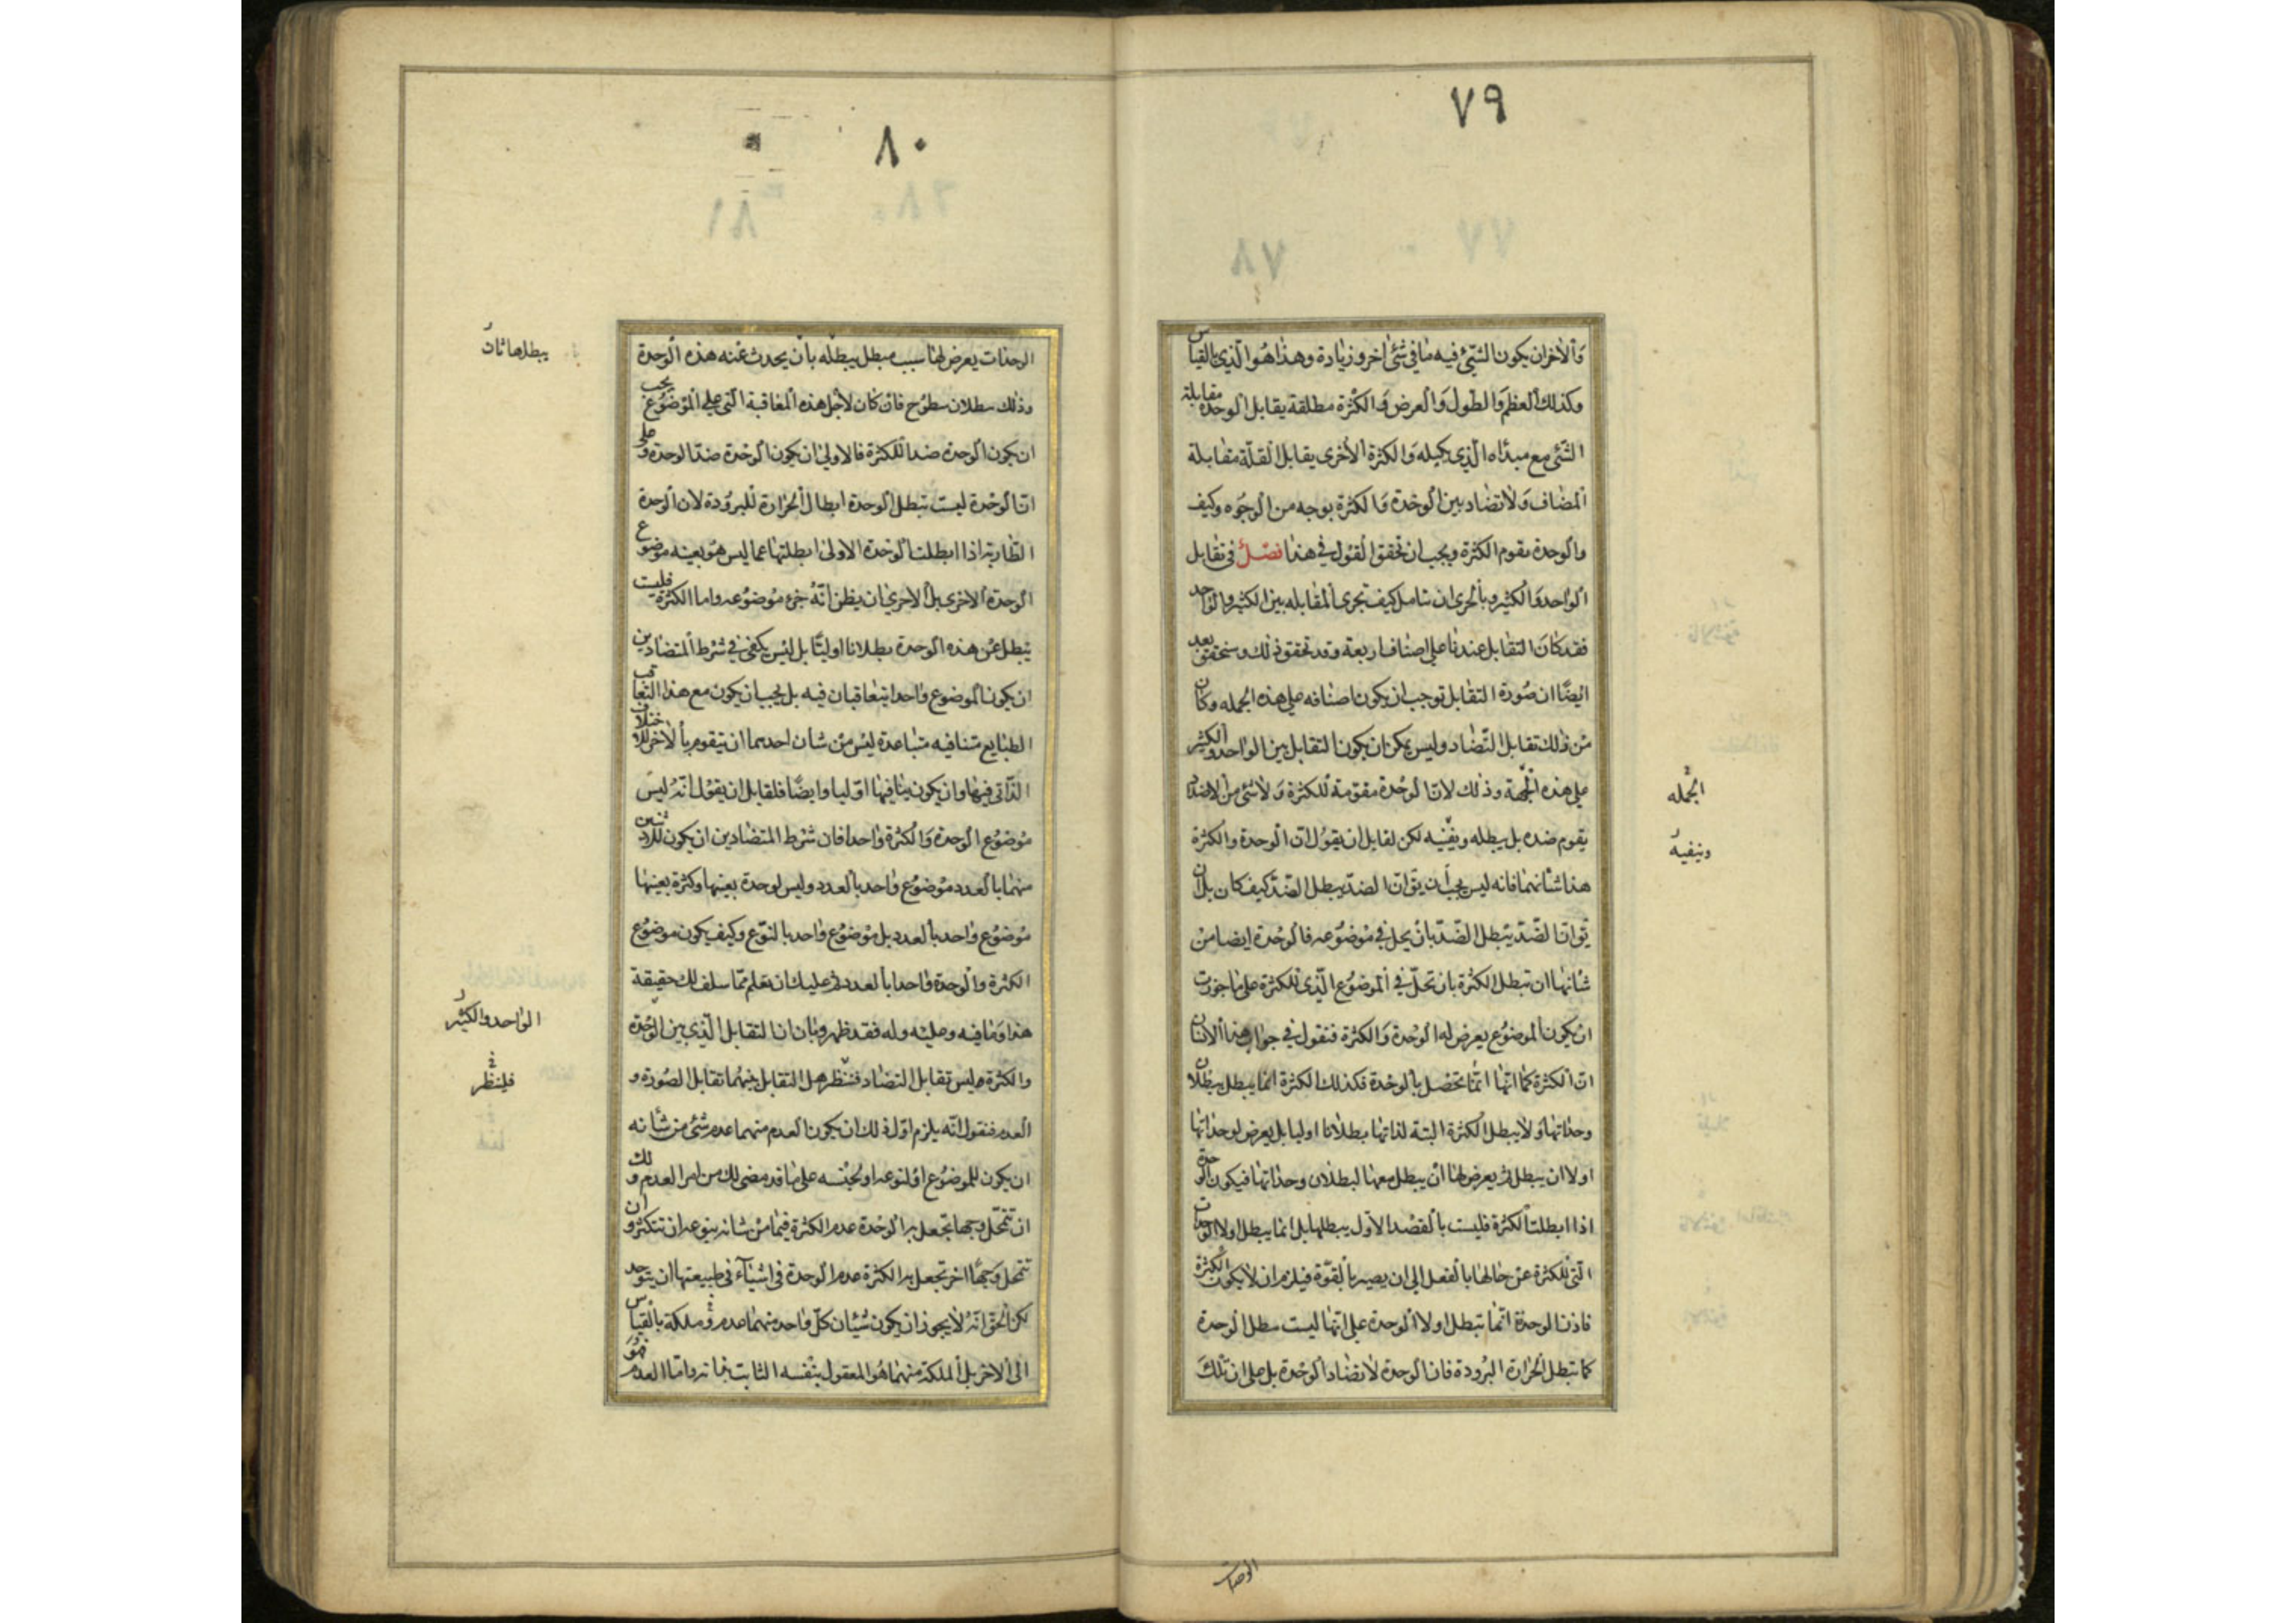 ٧٩
والاخر ان يكون الشيء فيه ما في شئ اخر وزيادة وهذا هو الذي بالقياس
وكذلك العظم والطول والعرض والكثرة مطلقة يقابل الوحدة مقابلة
الشئ مع مبداه الذي يكيله والكثرة الاخرى يقابل القلة مقابلة
المضاف ولا تضاد بين الوحدة والكثرة بوجه من الوجوه وكيف
والوحدة مقوم الكثرة ويجب ان نحقق القول في هذا فصل في تقابل
الواحد والكثير وبالحرى ان نتامل كيف تجرى المقابله بين الكثير والواحد
فقد كان التقابل عندنا على اصناف اربعة وقد تحقق ذلك وسنحقق بعد
ايضا ان صورة التقابل توجب ان يكون اصنافه على هذه الجمله وكان
من ذلك تقابل التضاد وليس يمكن ان يكون التقابل بين الواحد والكثير
على هذه الجهة وذلك لان الوحدة مقومة للكثرة ولا شئ من الاضداد
يقوم ضده بل يبطله وينفيه لكن لقايل ان يقول ان الوحدة والكثرة
هذا شانهما فانه ليس يجب ان يق ان الضد يبطل الضد كيف كان بل ان
يق ان الضد يبطل الضد بان يحل في موضوعه فالوحدة ايضا من
شانها ان تبطل الكثرة بان تحل في الموضوع الذي للكثرة على ما جوزت
ان يكون الموضوع يعرض له الوحدة والكثرة فنقول في جواب هذا الانسان
ان الكثرة كما انها انما تحصل بالوحدة فكذلك الكثرة انما يبطل ببطلان
وحداتها ولا يبطل الكثرة البتة لذاتها بطلانا اوليا بل يعرض لوحداتها
اولا ان يبطل ثم يعرض لها ان يبطل معها لبطلان وحداتها فيكون الوحدة
اذا ابطلت الكثرة فليست بالقصد الاول يبطلها بل انما يبطل اولا الوحدات
التي للكثرة عن حالها بالفعل الى ان يصير بالقوة فيلزم ان لا يكون الكثرة
فاذن الوحدة انما تبطل اولا الوحدة على انها ليست تبطل الوحدة
كما تبطل الحرارة البرودة فان الوحدة لا تضاد الوحدة بل على ان تلك
الجمله
وينفيه
الوحدات
٨٠
الوحدات يعرض لها سبب مبطل يبطله بان يحدث عنه هذه الوحدة
وذلك ببطلان سطوح فان كان لاجل هذه المعاقبة التي على الموضوع يجب
ان يكون الوحدة ضدا للكثرة فالاولى ان يكون الوحدة ضد الوحدة وعلى
ان الوحدة ليست تبطل الوحدة ابطال الحرارة للبرودة لان الوحدة
الطارية اذا ابطلت الوحدة الاولى ابطلتها عما ليس هو بعينه موضوع
الوحدة الاخرى بل الاحرى ان يظن انه جزء موضوعه واما الكثرة فليست
يبطل عن هذه الوحدة بطلانا اوليا بل ليس يكفي في شرط المتضادين
ان يكون الموضوع واحدا يتعاقبان فيه بل يجب ان يكون مع هذا التعاقب
الطبايع متنافيه متباعدة ليس من شان احدهما ان يتقوم بالاخر للاختلاف
الذاتي فيها وان يكون ينافيها اوليا وايضا فلقايل ان يقول انه ليس
موضوع الوحدة والكثرة واحدا فان شرط المتضادين ان يكون للاثنين
منهما بالعدد موضوع واحد بالعدد وليس لوحدة بعينها وكثرة بعينها
موضوع واحد بالعدد بل موضوع واحد بالنوع وكيف يكون موضوع
الكثرة والوحدة واحدا بالعدد ثم عليك ان تعلم مما سلف لك حقيقة
هذا وما فيه وعليه وله فقد ظهر وبان ان التقابل الذي بين الوحدة
والكثرة ليس تقابل التضاد فننظر هل التقابل بينهما تقابل الصورة و
العدم فنقول انه يلزم اول ذلك ان يكون العدم منهما عدم شئ من شانه
ان يكون للموضوع او لنوعه او لجنسه على ما قد مضى لك من امر العدم ولك
ان تتمحل وجها تجعل به الوحدة عدم الكثرة فيما من شانه بنوعه ان تتكثر وان
تتمحل وجها اخر تجعل به الكثرة عدم الوحدة في اشياء في طبيعتها ان يتوحد
لكن الحق انه لا يجوز ان يكون شيئان كل واحد منهما عدم وملكة بالقياس
الى الاخر بل الملكة منهما هو المعقول بنفسه الثابت بذاته واما العدم فهو
يبطلها ثات
الواحد والكثير
فلينظر